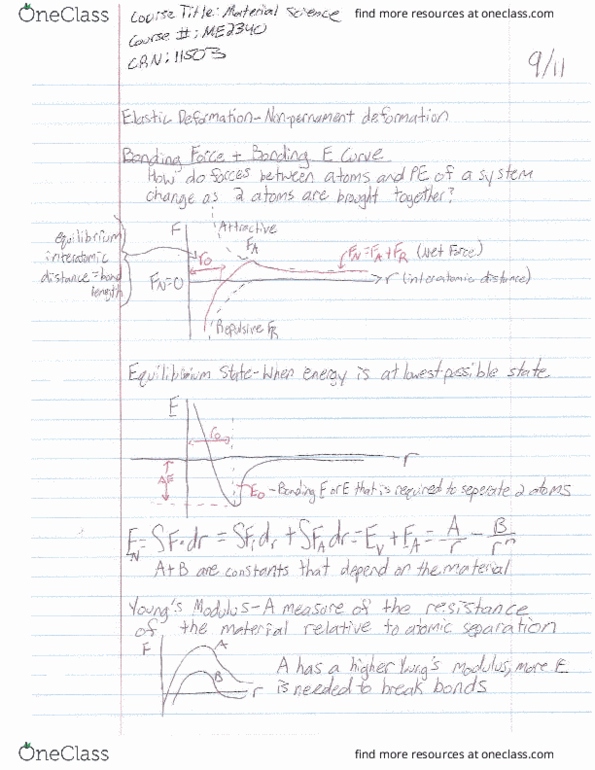 OneClass
find more resources at oneclass.com
Course Title: Material Science
Course #: ME2340
CRN: 11503
9/11
Elastic Deformation - Non-pernument deformation
Bonding Force + Bonding E Curve
How do forces between atoms and PE of a system
change as 2 atoms are brought together?
Equilibrium
interatomic
distance = bond
length
F
Attractive
FA
r0
FN = FA + FR (Net Force)
FN=0
r (interatomic distance)
Repulsive FR
Equilibrium State - When energy is at lowest possible state
E
r0
r
ΔE
E0 - Bonding E or E that is required to seperate 2 atoms
EN = ∫F·dr = ∫Frdr + ∫FAdr = EV + EA = A/r - B/r^n
A+B are constants that depend on the material
Young's Modulus - A measure of the resistance
of the material relative to atomic separation
F
A
B
r
A has a higher Yung's modulus, more E
is needed to break bonds
OneClass
find more resources at oneclass.com